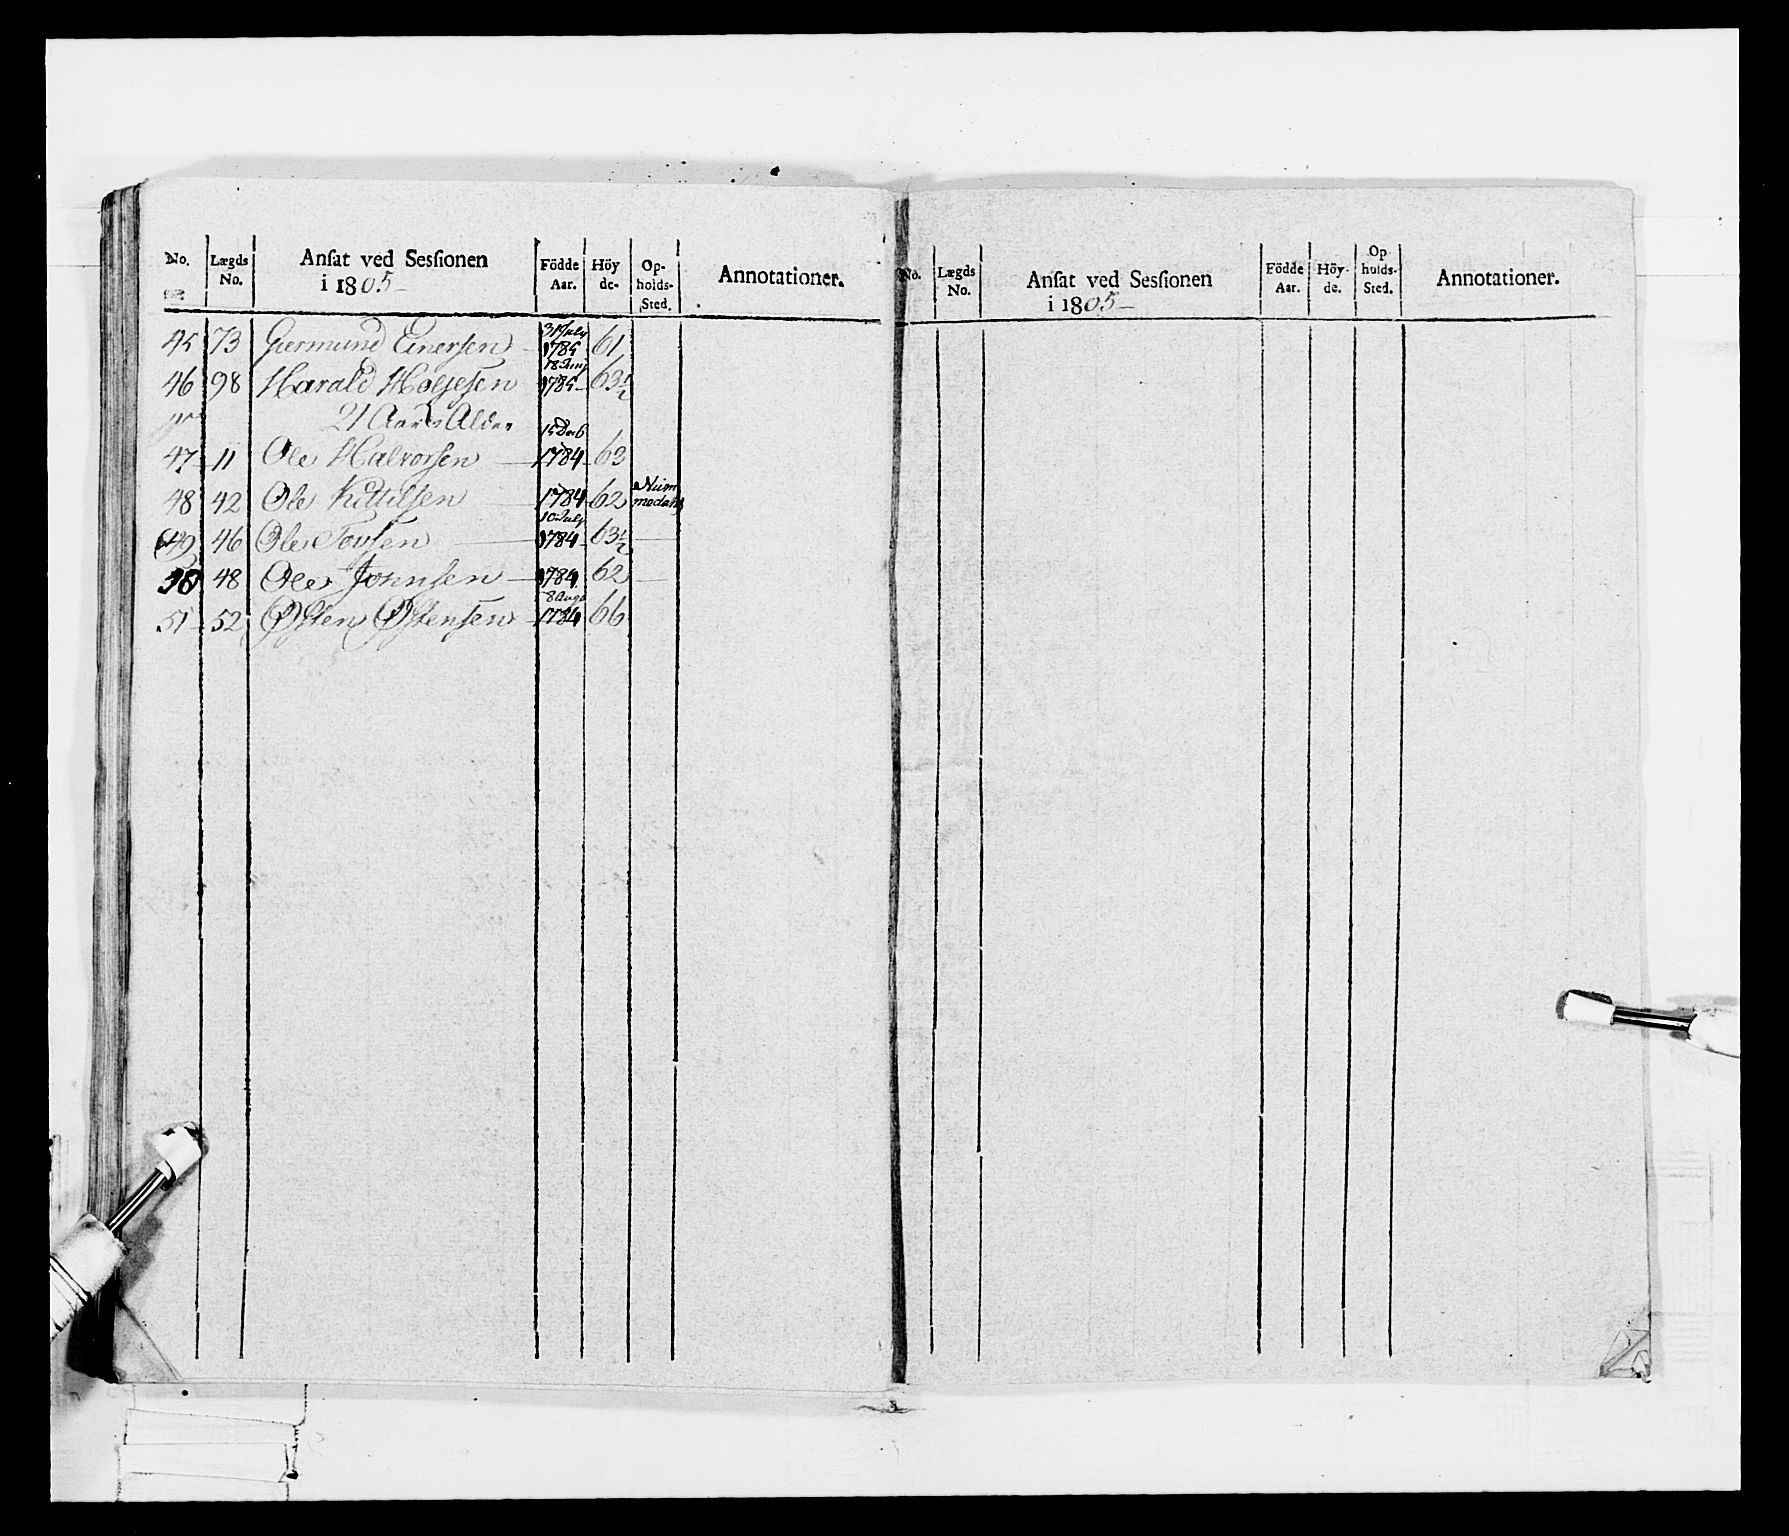 No. Lægds No. Ansat ved Sessionen i 1805 Födde Aar. Höy de. Op- holds- Sted. Annotationer.
45 73 Giermund Einersen 31 July 1785 61
46 98 Harald Holjesen 18 Junj 1785 63½
21 Aars Alder
47 11 Ole Halvorsen 15 Decb 1784 63
48 42 Ole Kittilsen 1784 62 Num medahl
49 46 Ole Tovsen 10 July 1784 63½
50 48 Ole Johnsen 1784 62
51 52 Østen Østensen 8 Aug 1784 66
No. Lægds No. Ansat ved Sessionen i 1805 Födde Aar. Höy- de. Op holds- Sted. Annotationer.